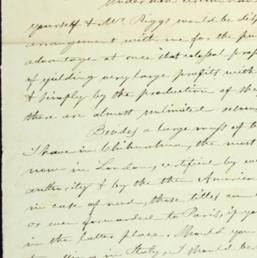 yourself & Mr. Riggs would be dis
arrangement with me for the pu
advantage at once that colossal prop
of yielding very large profits with
& simply by the production of the
there are almost unlimited
Besides a large mass of t
I have in Chihuahua, the most
now in London, certified by
authority & by the American
in case of need, these titles can
or even forwarded to Paris, if yo
in the latter place. Should you
in Italy, I should be